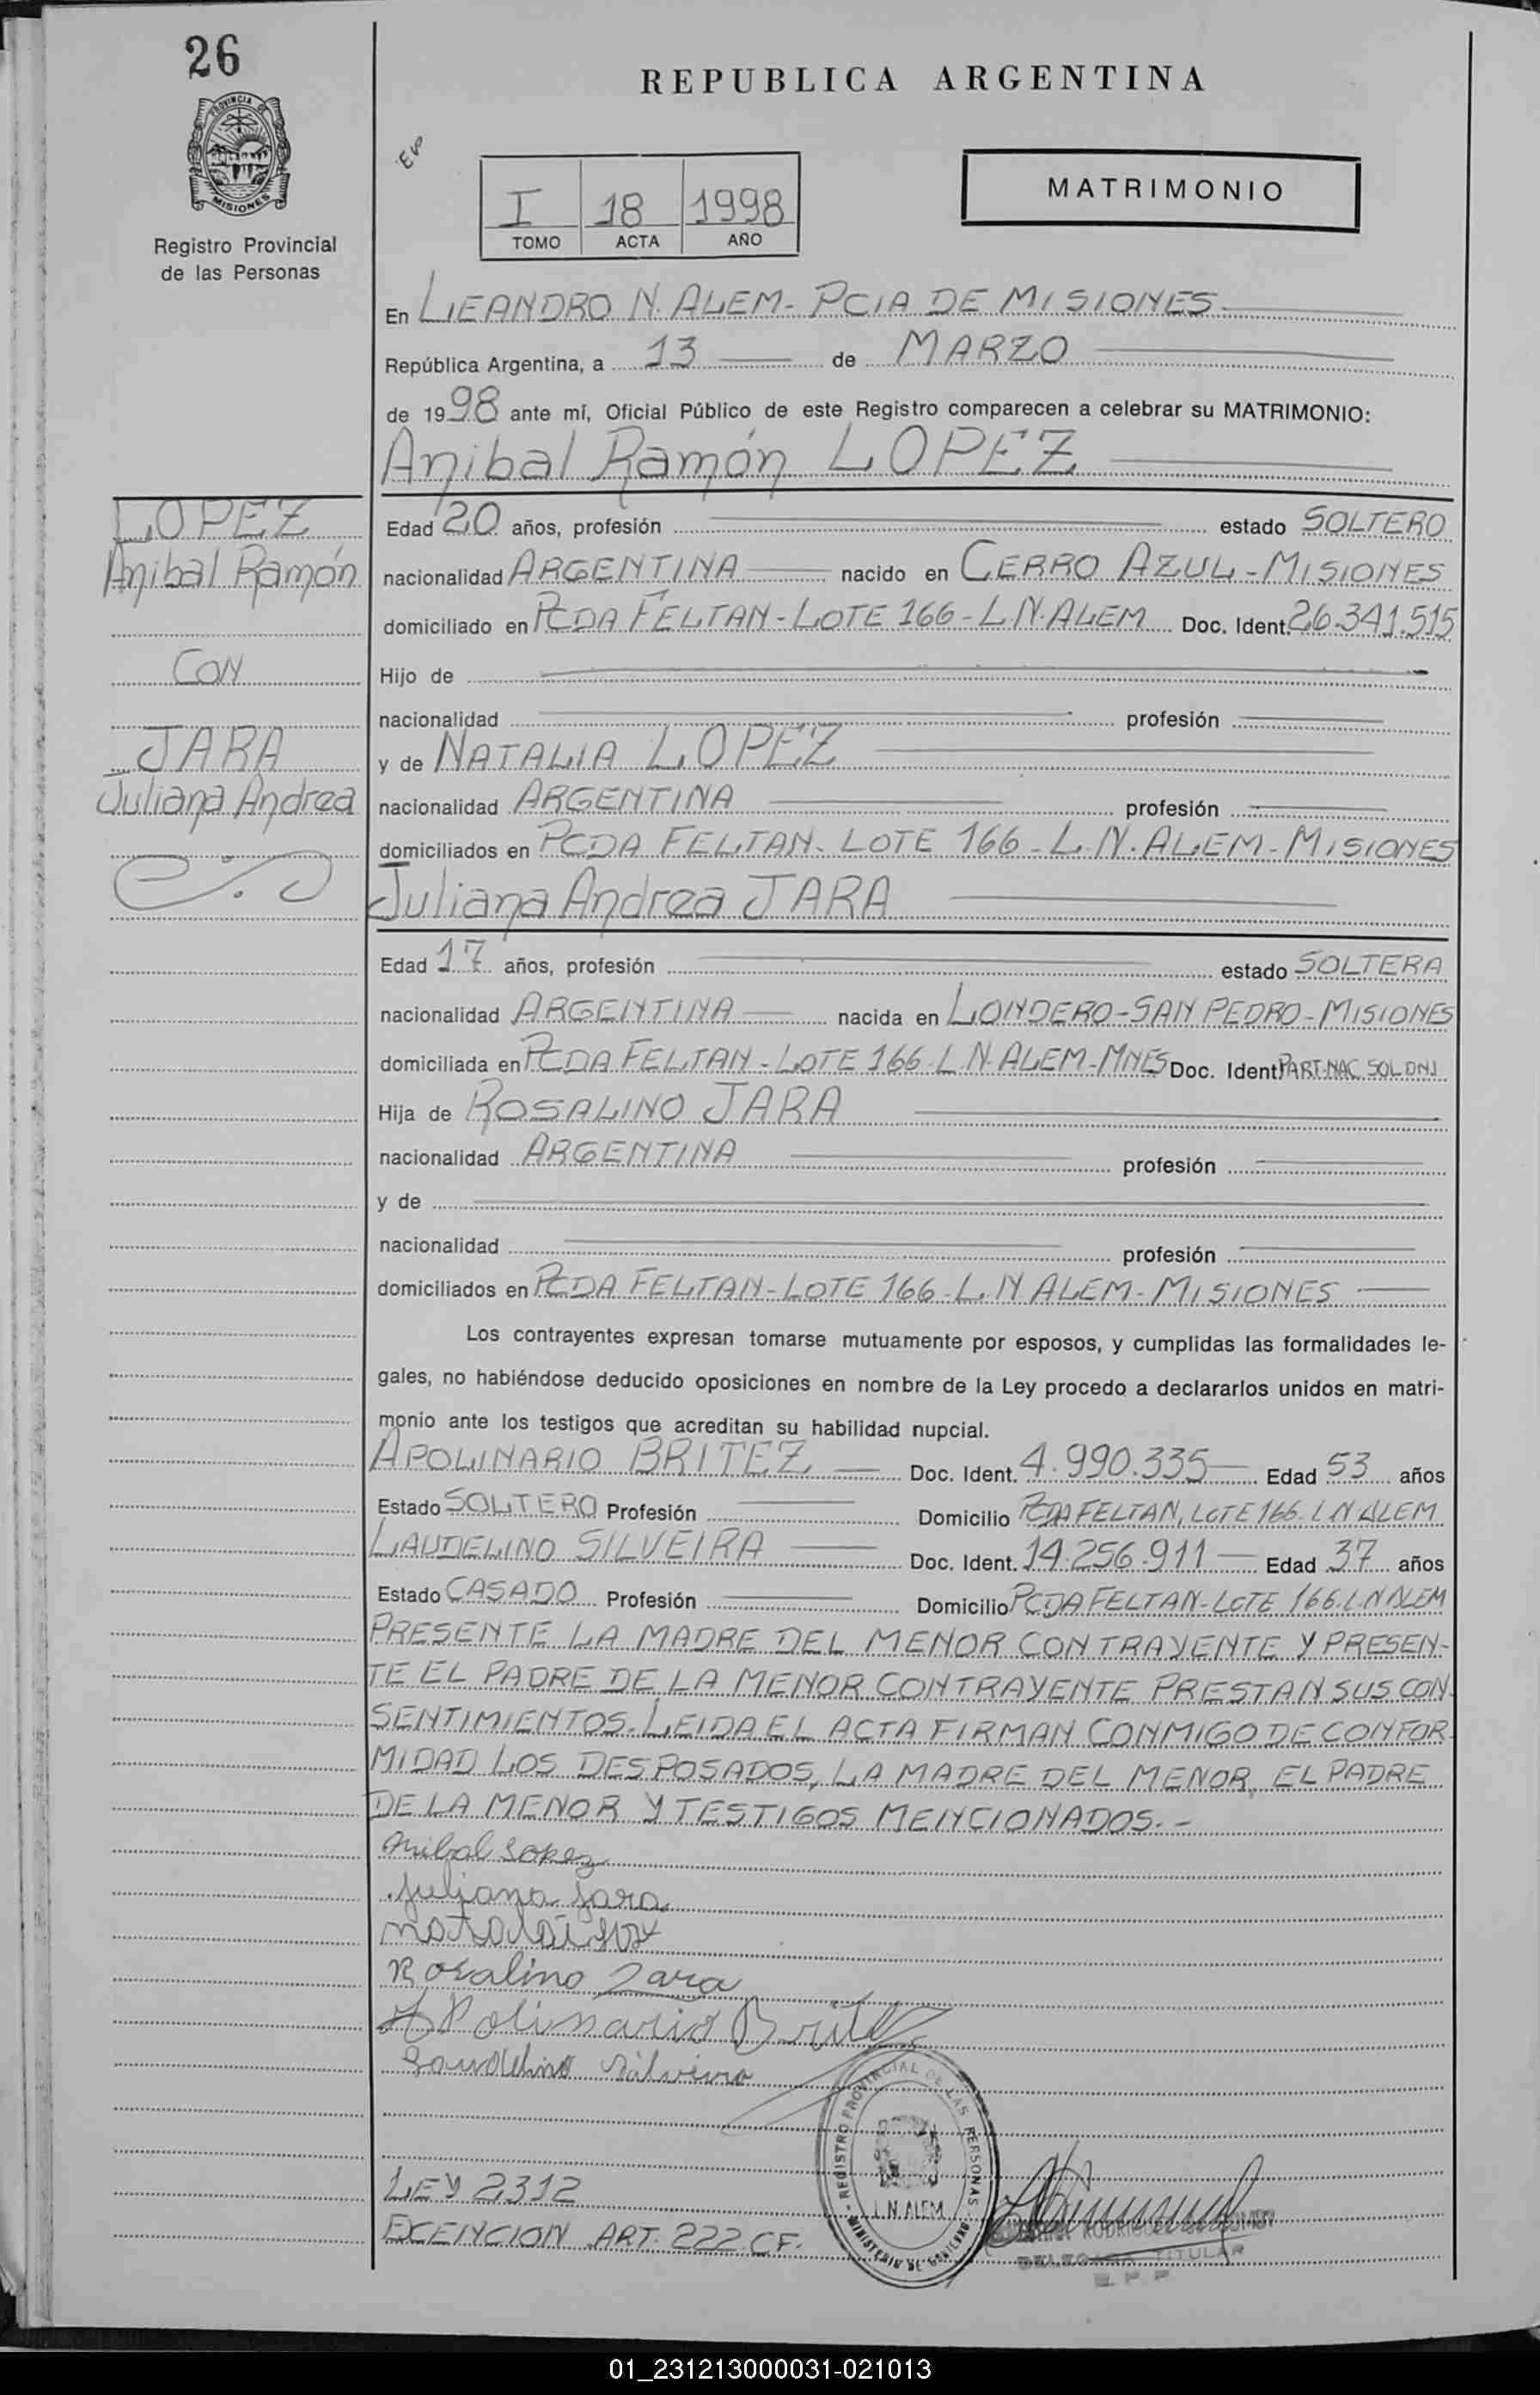 26
PROVINCIA DE
MISIONES
Registro Provincial
de las Personas
REPUBLICA ARGENTINA
I 18 1998
TOMO ACTA AÑO
MATRIMONIO
En LEANDRO N. ALEM - PCIA DE MISIONES
República Argentina, a 13 de MARZO
de 1998 ante mí, Oficial Público de este Registro comparecen a celebrar su MATRIMONIO:
Anibal Ramón LOPEZ
LOPEZ
Anibal Ramón
CON
JARA
Juliana Andrea
Edad 20 años, profesión estado SOLTERO
nacionalidad ARGENTINA nacido en CERRO AZUL - MISIONES
domiciliado en PCDA FELTAN - LOTE 166 - L.N. ALEM Doc. Ident. 26.341.515
Hijo de
nacionalidad profesión
y de NATALIA LOPEZ
nacionalidad ARGENTINA profesión
domiciliados en PCDA FELTAN - LOTE 166 - L.N. ALEM - MISIONES
Juliana Andrea JARA
Edad 17 años, profesión estado SOLTERA
nacionalidad ARGENTINA nacida en LONDERO - SAN PEDRO - MISIONES
domiciliada en PCDA FELTAN - LOTE 166 - L.N. ALEM - MNES Doc. Ident. PART. NAC. SOL DNI
Hija de ROSALINO JARA
nacionalidad ARGENTINA profesión
y de
nacionalidad profesión
domiciliados en PCDA FELTAN - LOTE 166 - L.N ALEM - MISIONES
Los contrayentes expresan tomarse mutuamente por esposos, y cumplidas las formalidades le-
gales, no habiéndose deducido oposiciones en nombre de la Ley procedo a declararlos unidos en matri-
monio ante los testigos que acreditan su habilidad nupcial.
APOLINARIO BRITEZ Doc. Ident. 4.990.335 Edad 53 años
Estado SOLTERO Profesión Domicilio PCDA FELTAN, LOTE 166 - L N ALEM
LAUDELINO SILVEIRA Doc. Ident. 14.256.911 Edad 37 años
Estado CASADO Profesión Domicilio PCDA FELTAN - LOTE 166. L.N ALEM
PRESENTE LA MADRE DEL MENOR CONTRAYENTE Y PRESEN-
TE EL PADRE DE LA MENOR CONTRAYENTE PRESTAN SUS CON
SENTIMIENTOS. LEIDA EL ACTA FIRMAN CONMIGO DE CONFOR
MIDAD LOS DESPOSADOS, LA MADRE DEL MENOR, EL PADRE
DE LA MENOR Y TESTIGOS MENCIONADOS. -
Anibal Lopez
Juliana Jara
Rosalino Jara
Apolinario Britez
Laudelino Silveira
REGISTRO PROVINCIAL DE LAS PERSONAS
L.N. ALEM
MINISTERIO DE GOBIERNO
LEY 2312
EXCENCION ART. 222 CF.
RODRIGUEZ
DELEGADA TITULAR
R P P
01_231213000031-021013